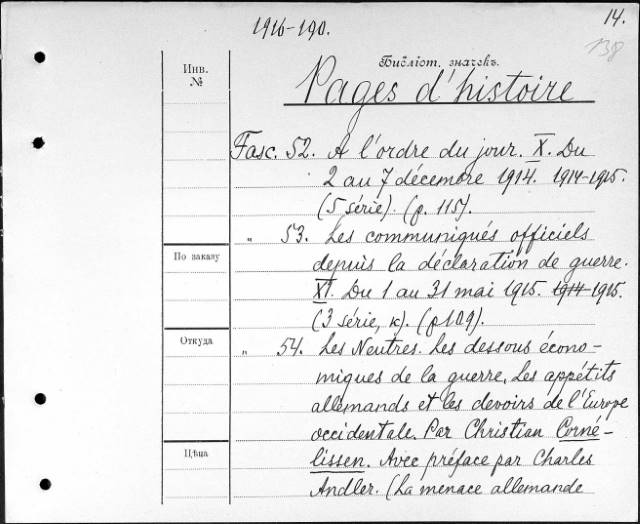 1916-190.
14.
138
Библіот. значекъ.
Инв.
№
Pages d'histoire
Fasc. 52. A l'ordre du jour. X. Du
2 au 7 décembre 1914. 1914-1915.
(5 série). (p. 115).
" 53. Les communiqués officiels
depuis la déclaration de guerre.
По заказу
XI. Du 1 au 31 mai 1915. 1914-1915.
(3 série, к). (p 109).
Откуда
" 54. Les Neutres. Les dessous écono-
miques de la guerre. Les appétits
allemands et les devoirs de l'Europe
occidentale. Par Christian Corné-
Цѣна
lissen. Avec préface par Charles
Andler. (La menace allemande